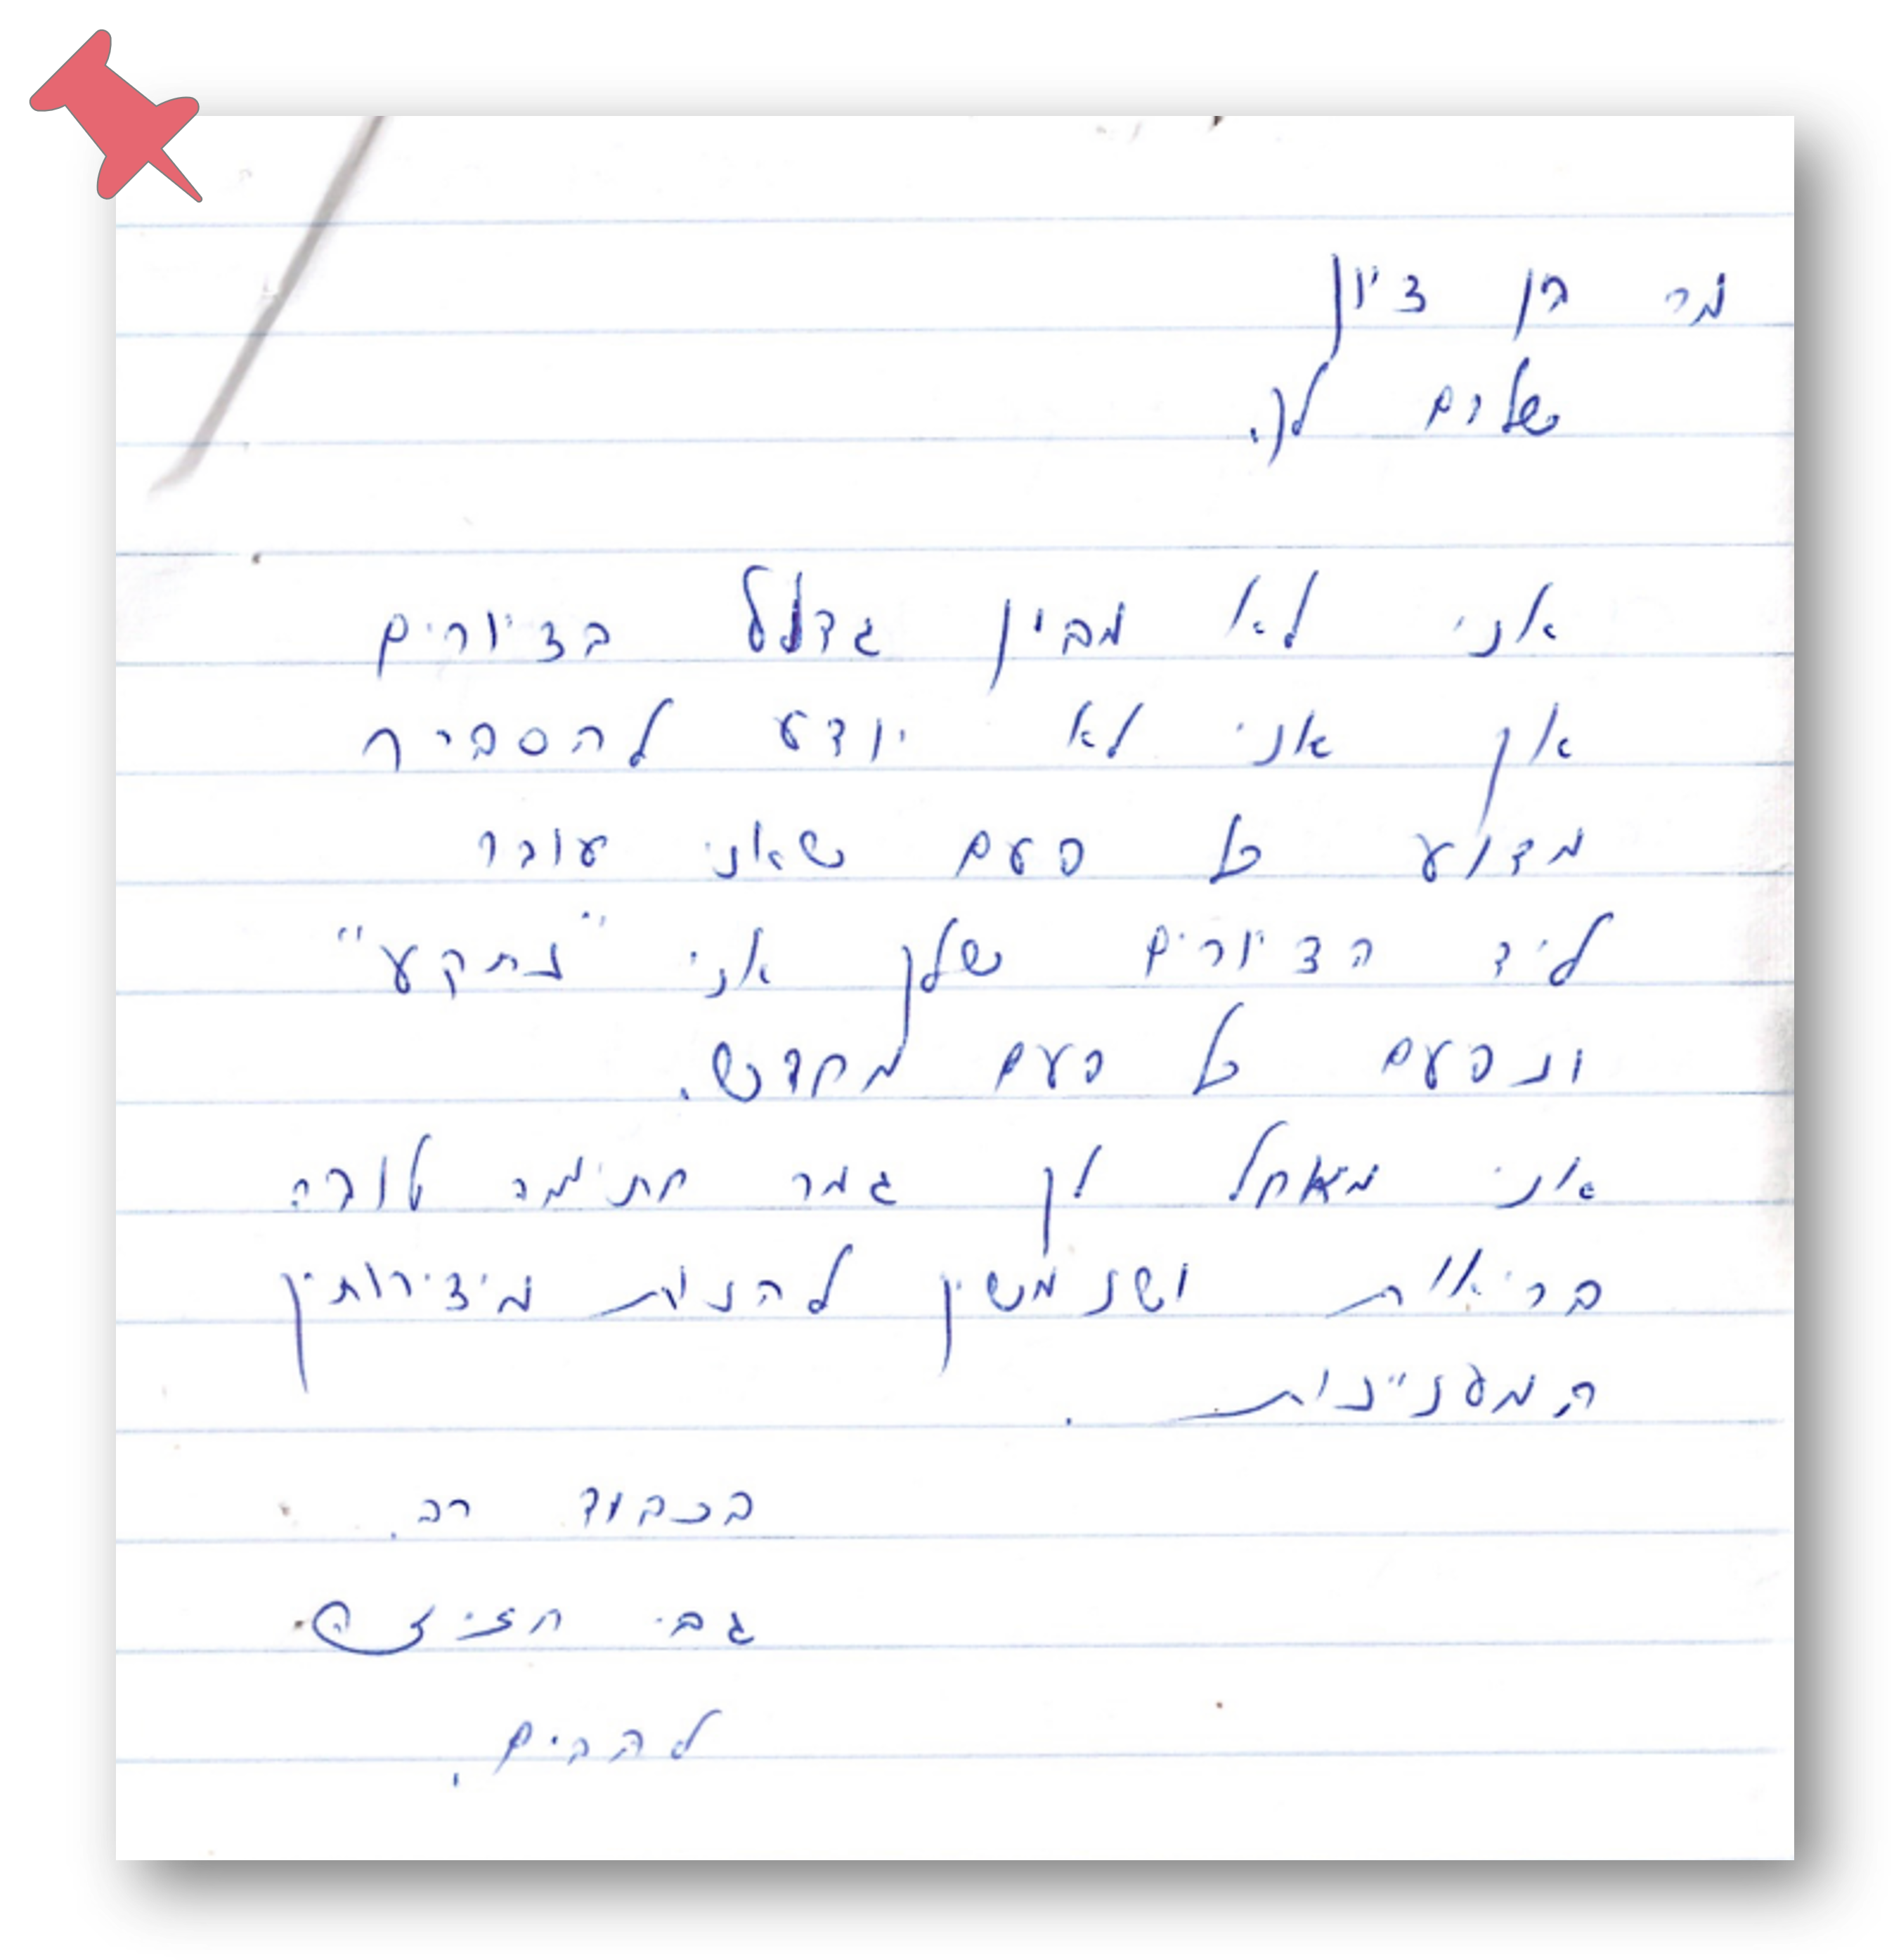 מר בן ציון
שלום לך.
אני לא מבין גדול בציורים
אך אני לא יודע להסביר
מדוע כל פעם שאני עובר
ליד הציורים שלך אני "נתקע"
ונפעם כל פעם מחדש.
אני מאחל לך גמר חתימה טובה
בריאות ושנמשיך להנות מיצירותיך
המעניינות.
בכבוד רב.
גבי חזיזה
להבים.